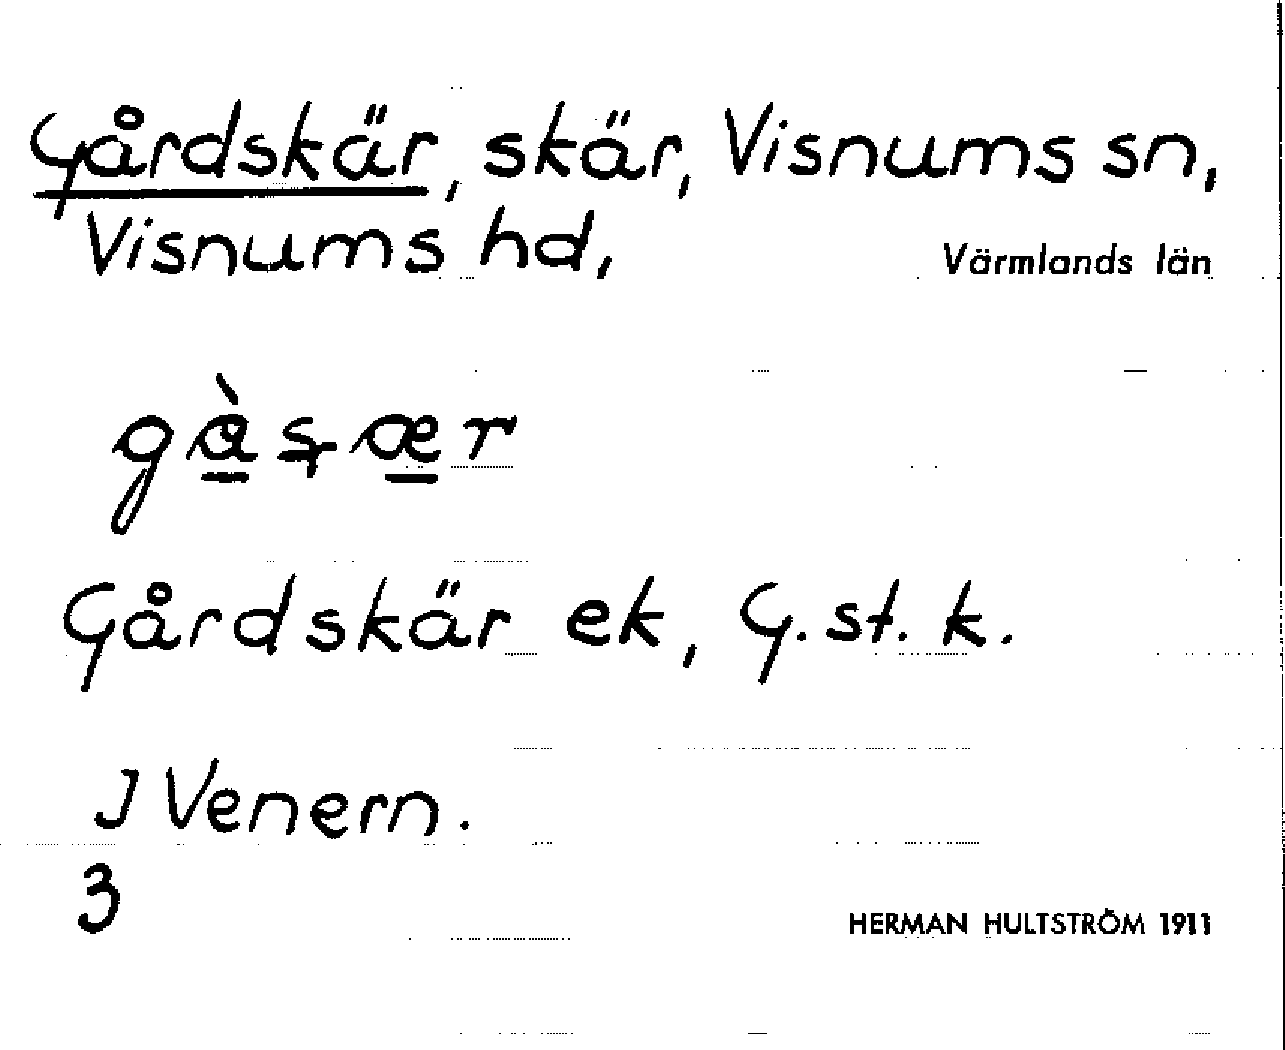 Gårdskär, skär, Visnums sn,
Visnums hd, Värmlands län
Gårdskär ek, G. st. k.
I Venern.
3
HERMAN HULTSTRÖM 1911